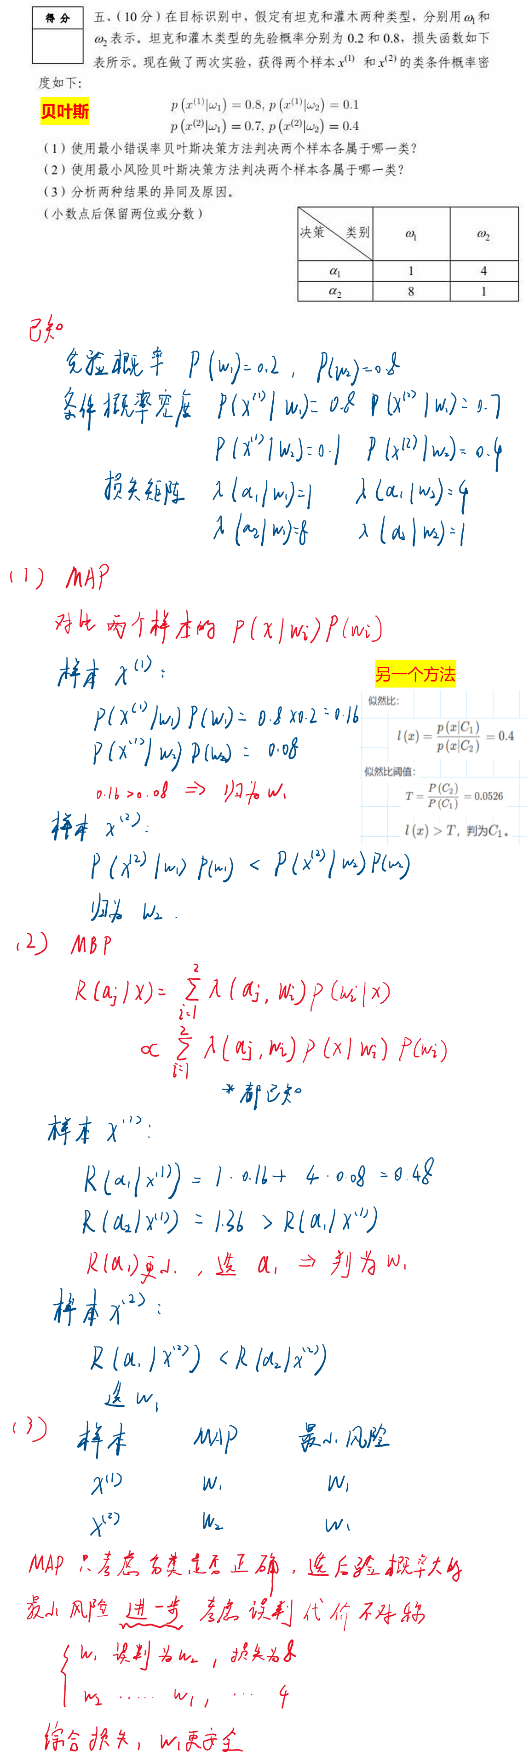 得 分
五、(10 分)在目标识别中,假定有坦克和灌木两种类型,分别用ω₁和
ω₂表示。坦克和灌木类型的先验概率分别为 0.2 和 0.8,损失函数如下
表所示。现在做了两次实验,获得两个样本x⁽¹⁾ 和x⁽²⁾的类条件概率密
度如下:
贝叶斯
p(x⁽¹⁾|ω₁) = 0.8, p(x⁽¹⁾|ω₂) = 0.1
p(x⁽²⁾|ω₁) = 0.7, p(x⁽²⁾|ω₂) = 0.4
(1)使用最小错误率贝叶斯决策方法判决两个样本各属于哪一类?
(2)使用最小风险贝叶斯决策方法判决两个样本各属于哪一类?
(3)分析两种结果的异同及原因。
(小数点后保留两位或分数)
决策 类别 ω₁ ω₂
α₁ 1 4
α₂ 8 1
已知
先验概率 P(w₁)=0.2, P(w₂)=0.8
条件概率密度 P(x⁽¹⁾|w₁)=0.8 P(x⁽²⁾|w₁)=0.7
P(x⁽¹⁾|w₂)=0.1 P(x⁽²⁾|w₂)=0.4
损失矩阵 λ(a₁|w₁)=1 λ(a₁|w₂)=4
λ(a₂|w₁)=8 λ(a₂|w₂)=1
(1) MAP
对比两个样本的 P(x|wi)P(wi)
样本 x⁽¹⁾:
P(x⁽¹⁾|w₁)P(w₁)=0.8×0.2=0.16
P(x⁽¹⁾|w₂)P(w₂)=0.08
0.16>0.08 ⇒ 归为 w₁
另一个方法
似然比:
l(x) = p(x|C₁) / p(x|C₂) = 0.4
似然比阈值:
T = P(C₂) / P(C₁) = 0.0526
l(x) > T, 判为C₁。
样本 x⁽²⁾:
P(x⁽²⁾|w₁)P(w₁) < P(x⁽²⁾|w₂)P(w₂)
归为 w₂.
(2) MBP
R(aj|x)= ∑²ᵢ₌₁ λ(aj,wi)P(wi|x)
∝ ∑²ᵢ₌₁ λ(aj,wi)P(x|wi)P(wi)
*都已知
样本 x⁽¹⁾:
R(a₁|x⁽¹⁾)=1·0.16+4·0.08=0.48
R(a₂|x⁽¹⁾)=1.36>R(a₁|x⁽¹⁾)
R(a₁)更小, 选 a₁ ⇒ 判为 w₁
样本 x⁽²⁾:
R(a₁|x⁽²⁾)<R(a₂|x⁽²⁾)
选 w₁
(3) 样本 MAP 最小风险
x⁽¹⁾ w₁ w₁
x⁽²⁾ w₂ w₁
MAP 只考虑分类是否正确, 选后验概率大的
最小风险 进一步 考虑误判代价不对称
{ w₁ 误判为 w₂, 损失为8
w₂ ····· w₁, ··· 4
综合损失, w₁更安全